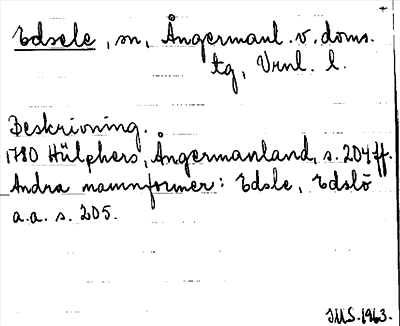 Edsele, sn, Ångermanl. v. doms.
tg, Vrnl. l.
Beskrivning.
1780 Hülphers, Ångermanland, s. 204 ff.
Andra namnformer: Edsle, Edslö
a.a. s. 205.
IMS. 1963.